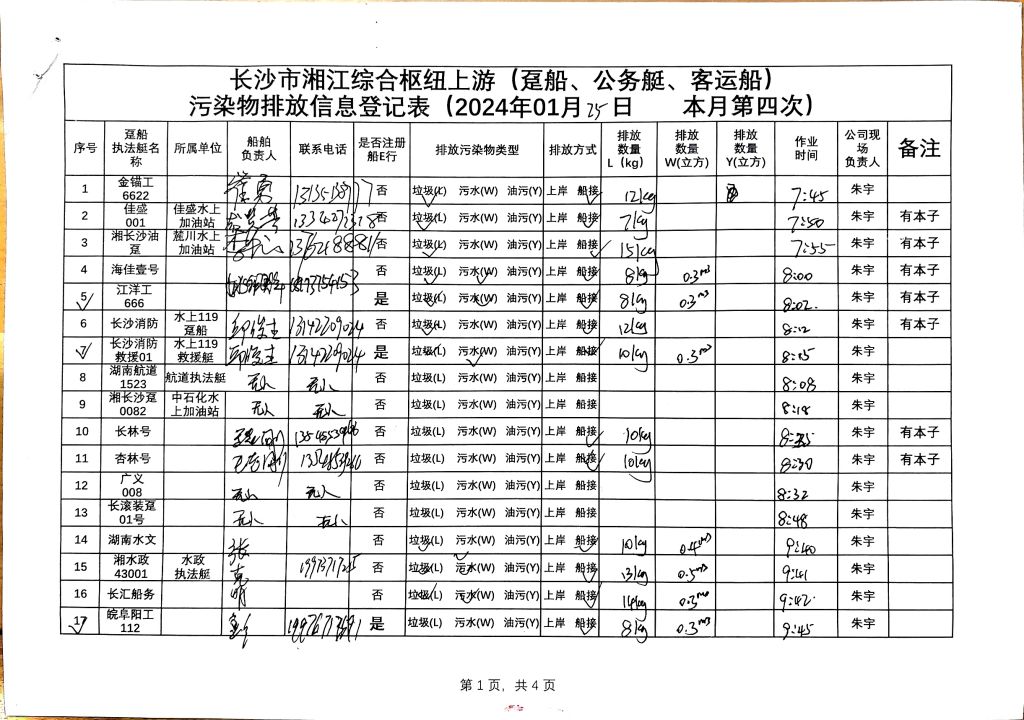 长沙市湘江综合枢纽上游（趸船、公务艇、客运船）
污染物排放信息登记表（2024年01月25日 本月第四次）
序号 趸船执法艇名称 所属单位 船舶负责人 联系电话 是否注册船E行 排放污染物类型 排放方式 排放数量L（kg） 排放数量W(立方) 排放数量Y(立方) 作业时间 公司现场负责人 备注
1 金锚工6622 否 垃圾(L) 污水(W) 油污(Y) 上岸 船接 12kg 7:45 朱宇
2 佳盛001 佳盛水上加油站 否 垃圾(L) 污水(W) 油污(Y) 上岸 船接 7kg 7:50 朱宇 有本子
3 湘长沙油趸 麓川水上加油站 否 垃圾(L) 污水(W) 油污(Y) 上岸 船接 15kg 7:55 朱宇 有本子
4 海佳壹号 否 垃圾(L) 污水(W) 油污(Y) 上岸 船接 8kg 0.3m3 8:00 朱宇 有本子
5 江洋工666 是 垃圾(L) 污水(W) 油污(Y) 上岸 船接 8kg 0.3m3 8:02 朱宇 有本子
6 长沙消防 水上119趸船 13142209024 否 垃圾(L) 污水(W) 油污(Y) 上岸 船接 12kg 8:12 朱宇 有本子
7 长沙消防救援01 水上119救援艇 13142209024 是 垃圾(L) 污水(W) 油污(Y) 上岸 船接 10kg 0.3m3 8:15 朱宇
8 湖南航道1523 航道执法艇 无人 无人 否 垃圾(L) 污水(W) 油污(Y) 上岸 船接 8:08 朱宇
9 湘长沙趸0082 中石化水上加油站 无人 无人 否 垃圾(L) 污水(W) 油污(Y) 上岸 船接 8:18 朱宇
10 长林号 否 垃圾(L) 污水(W) 油污(Y) 上岸 船接 10kg 朱宇 有本子
11 杏林号 否 垃圾(L) 污水(W) 油污(Y) 上岸 船接 10kg 8:30 朱宇 有本子
12 广义008 无人 无人 否 垃圾(L) 污水(W) 油污(Y) 上岸 船接 8:32 朱宇
13 长滚装趸01号 无人 无人 否 垃圾(L) 污水(W) 油污(Y) 上岸 船接 8:48 朱宇
14 湖南水文 张 否 垃圾(L) 污水(W) 油污(Y) 上岸 船接 10kg 0.4m3 9:40 朱宇
15 湘水政43001 水政执法艇 克 否 垃圾(L) 污水(W) 油污(Y) 上岸 船接 13kg 0.5m3 9:41 朱宇
16 长汇船务 明 否 垃圾(L) 污水(W) 油污(Y) 上岸 船接 14kg 0.3m3 9:42 朱宇
17 皖阜阳工112 是 垃圾(L) 污水(W) 油污(Y) 上岸 船接 8kg 0.3m3 9:45 朱宇
第 1 页，共 4 页